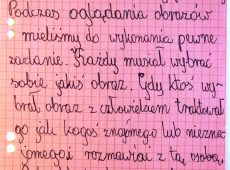 Podczas oglądania obrazów
mieliśmy do wykonania pewne
zadanie. Każdy musiał wybrać
sobie jakiś obraz. Gdy ktoś wy-
brał obraz z człowiekiem traktował
go jak kogoś znajomego lub niezna-
jomego i rozmawiać z tą osobą,